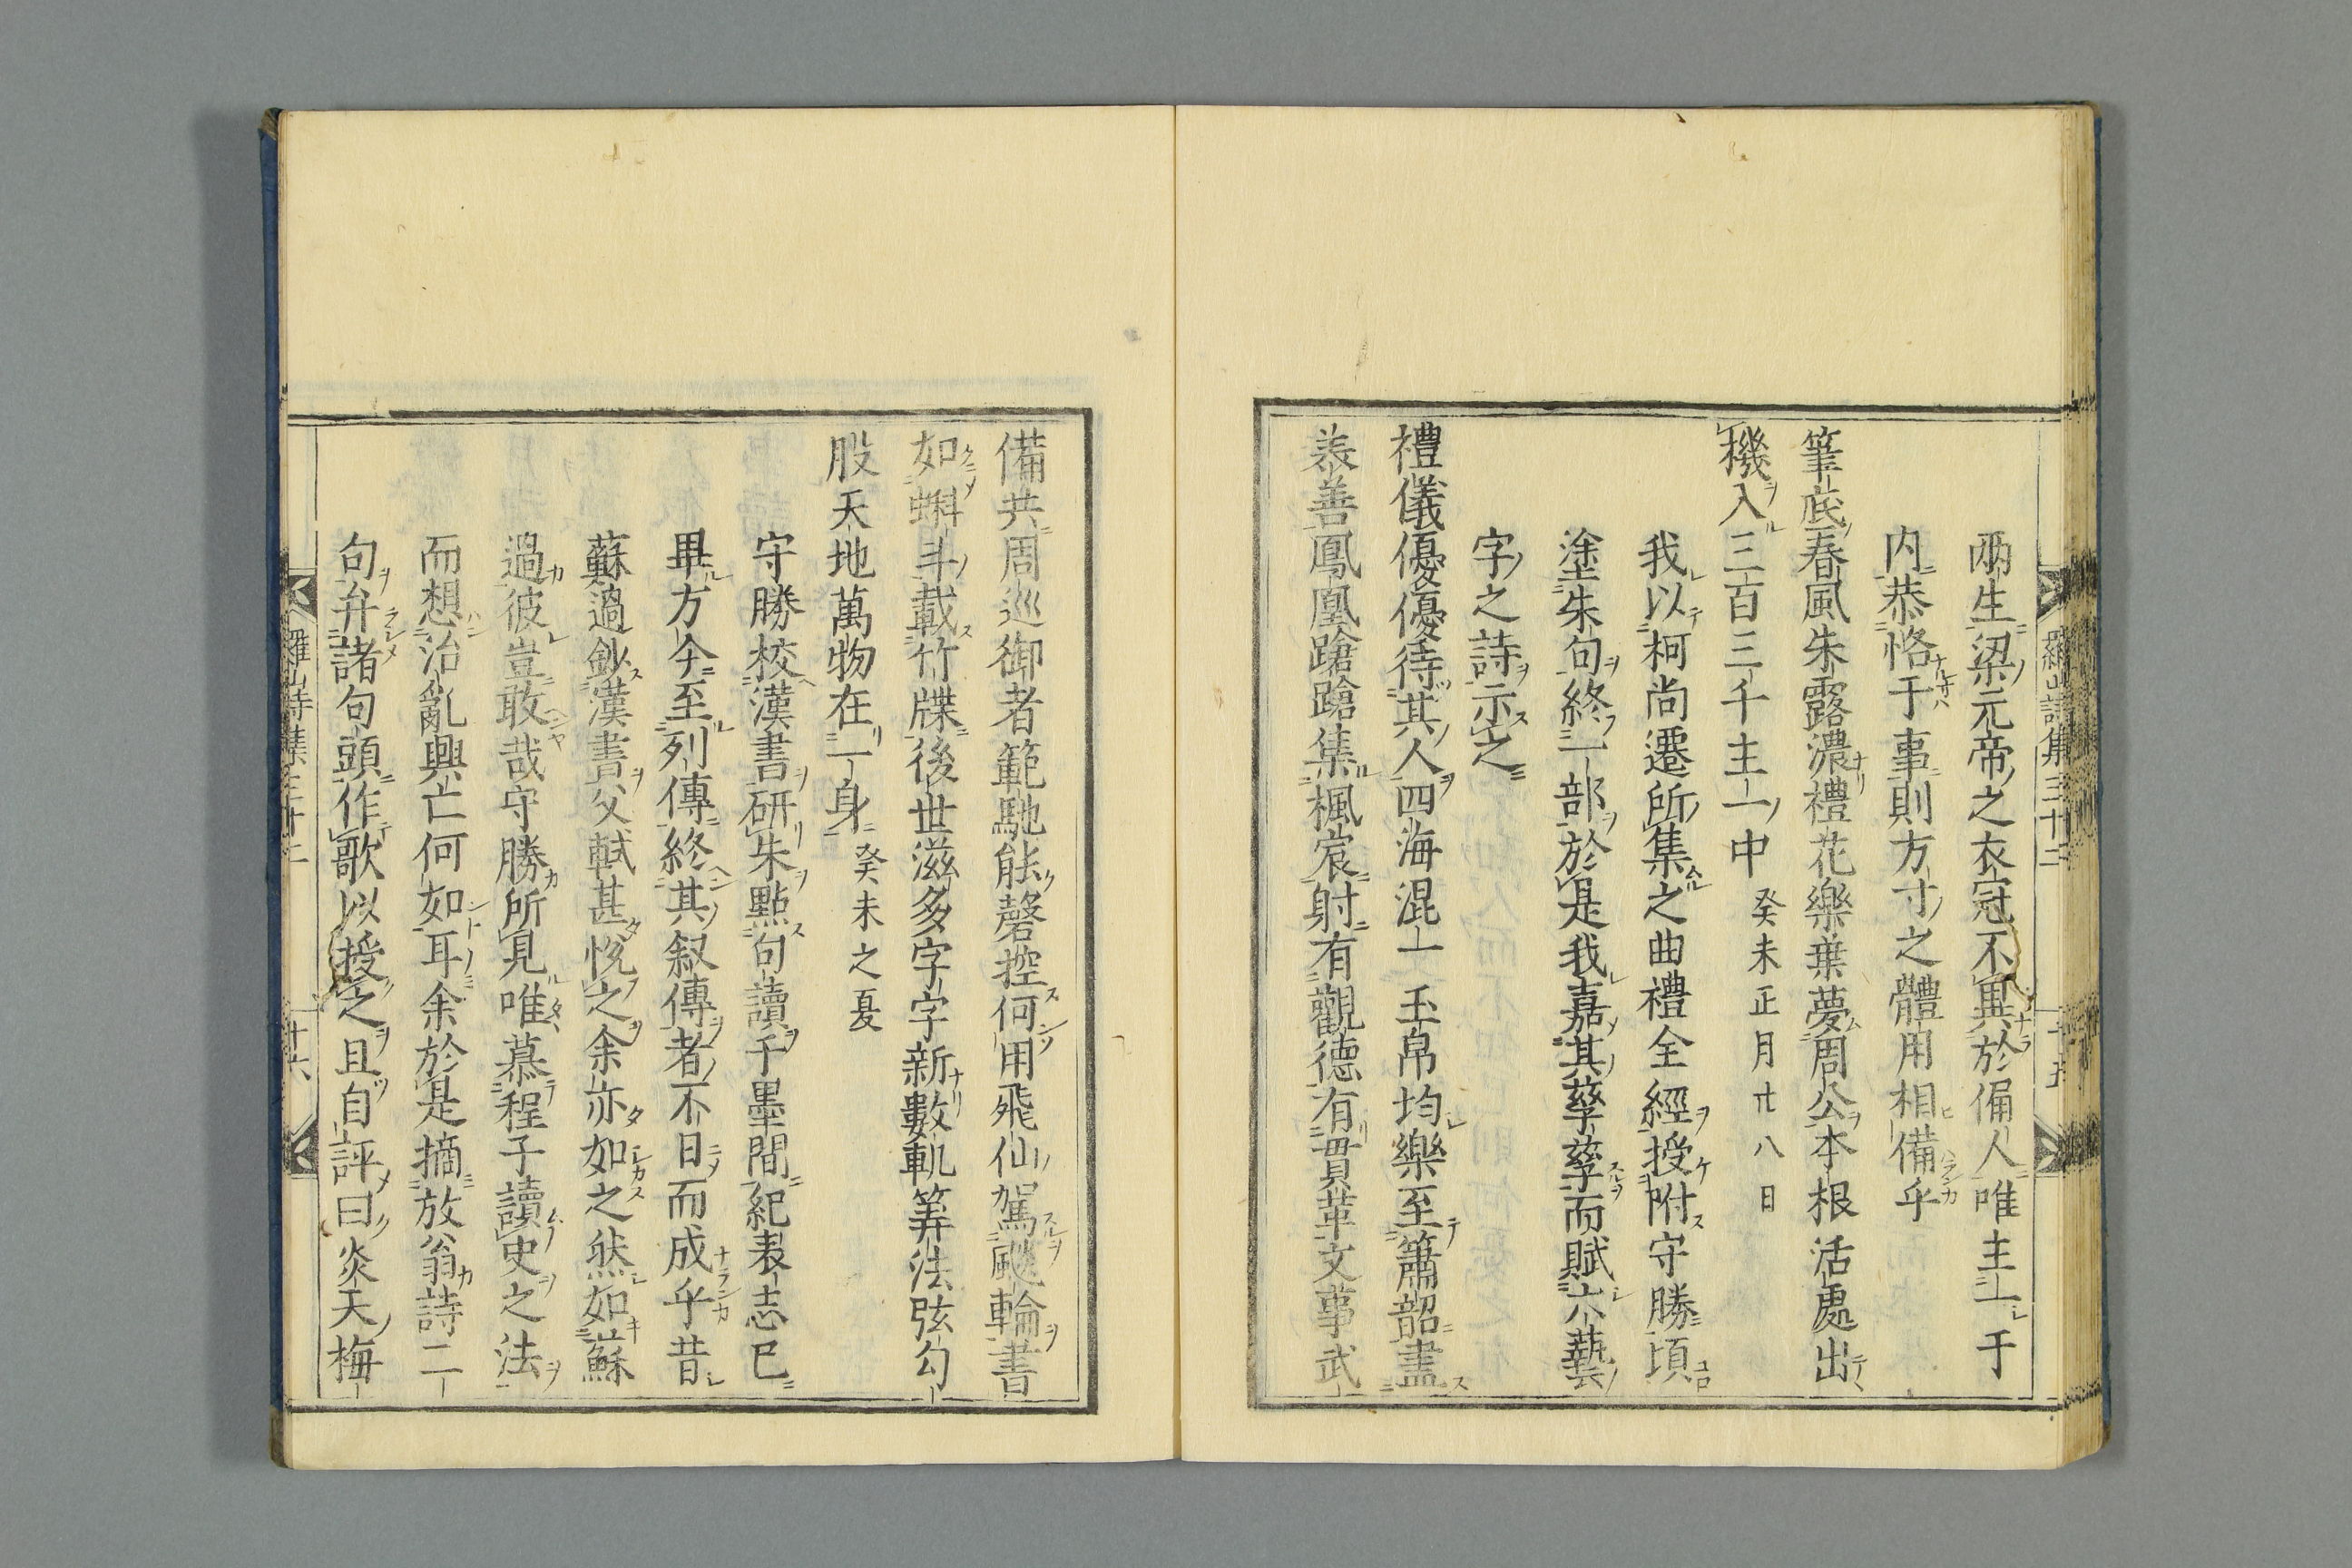 羅山詩集三十二
十五
兩生梁元帝之衣冠不異於偶人唯主一于
内恭恪于事則方寸之體用相備乎
筆底春風朱露濃禮花樂葉夢周公本根活處出
機入三百三千主一中 癸未正月廿八日
我以柯尚遷所集之曲禮全經授附守勝頃
塗朱句終一部於是我嘉其孳孳而賦六藝
字之詩示之
禮儀優優待其人四海混一玉帛均樂至簫韶盡
美善鳳凰蹌蹌集楓宸射有觀德有貫革文事武
備共周巡御者範馳能磬控何用飛仙駕飈輪書
如蝌斗載竹牒後世滋多字字新數軌筭法弦勾
股天地萬物在一身 癸未之夏
守勝校漢書研朱點句讀于墨間紀表志已
畢方今至列傳終其叙傳者不日而成乎昔
蘇過鈔漢書父軾甚悅之余亦如之然如蘇
過彼豈敢哉守勝所見唯慕程子讀史之法
而想治亂興亡何如耳余於是摘放翁詩二
句弁諸句頭作歌以授之且自評曰炎天梅
羅山詩集三十二
十六